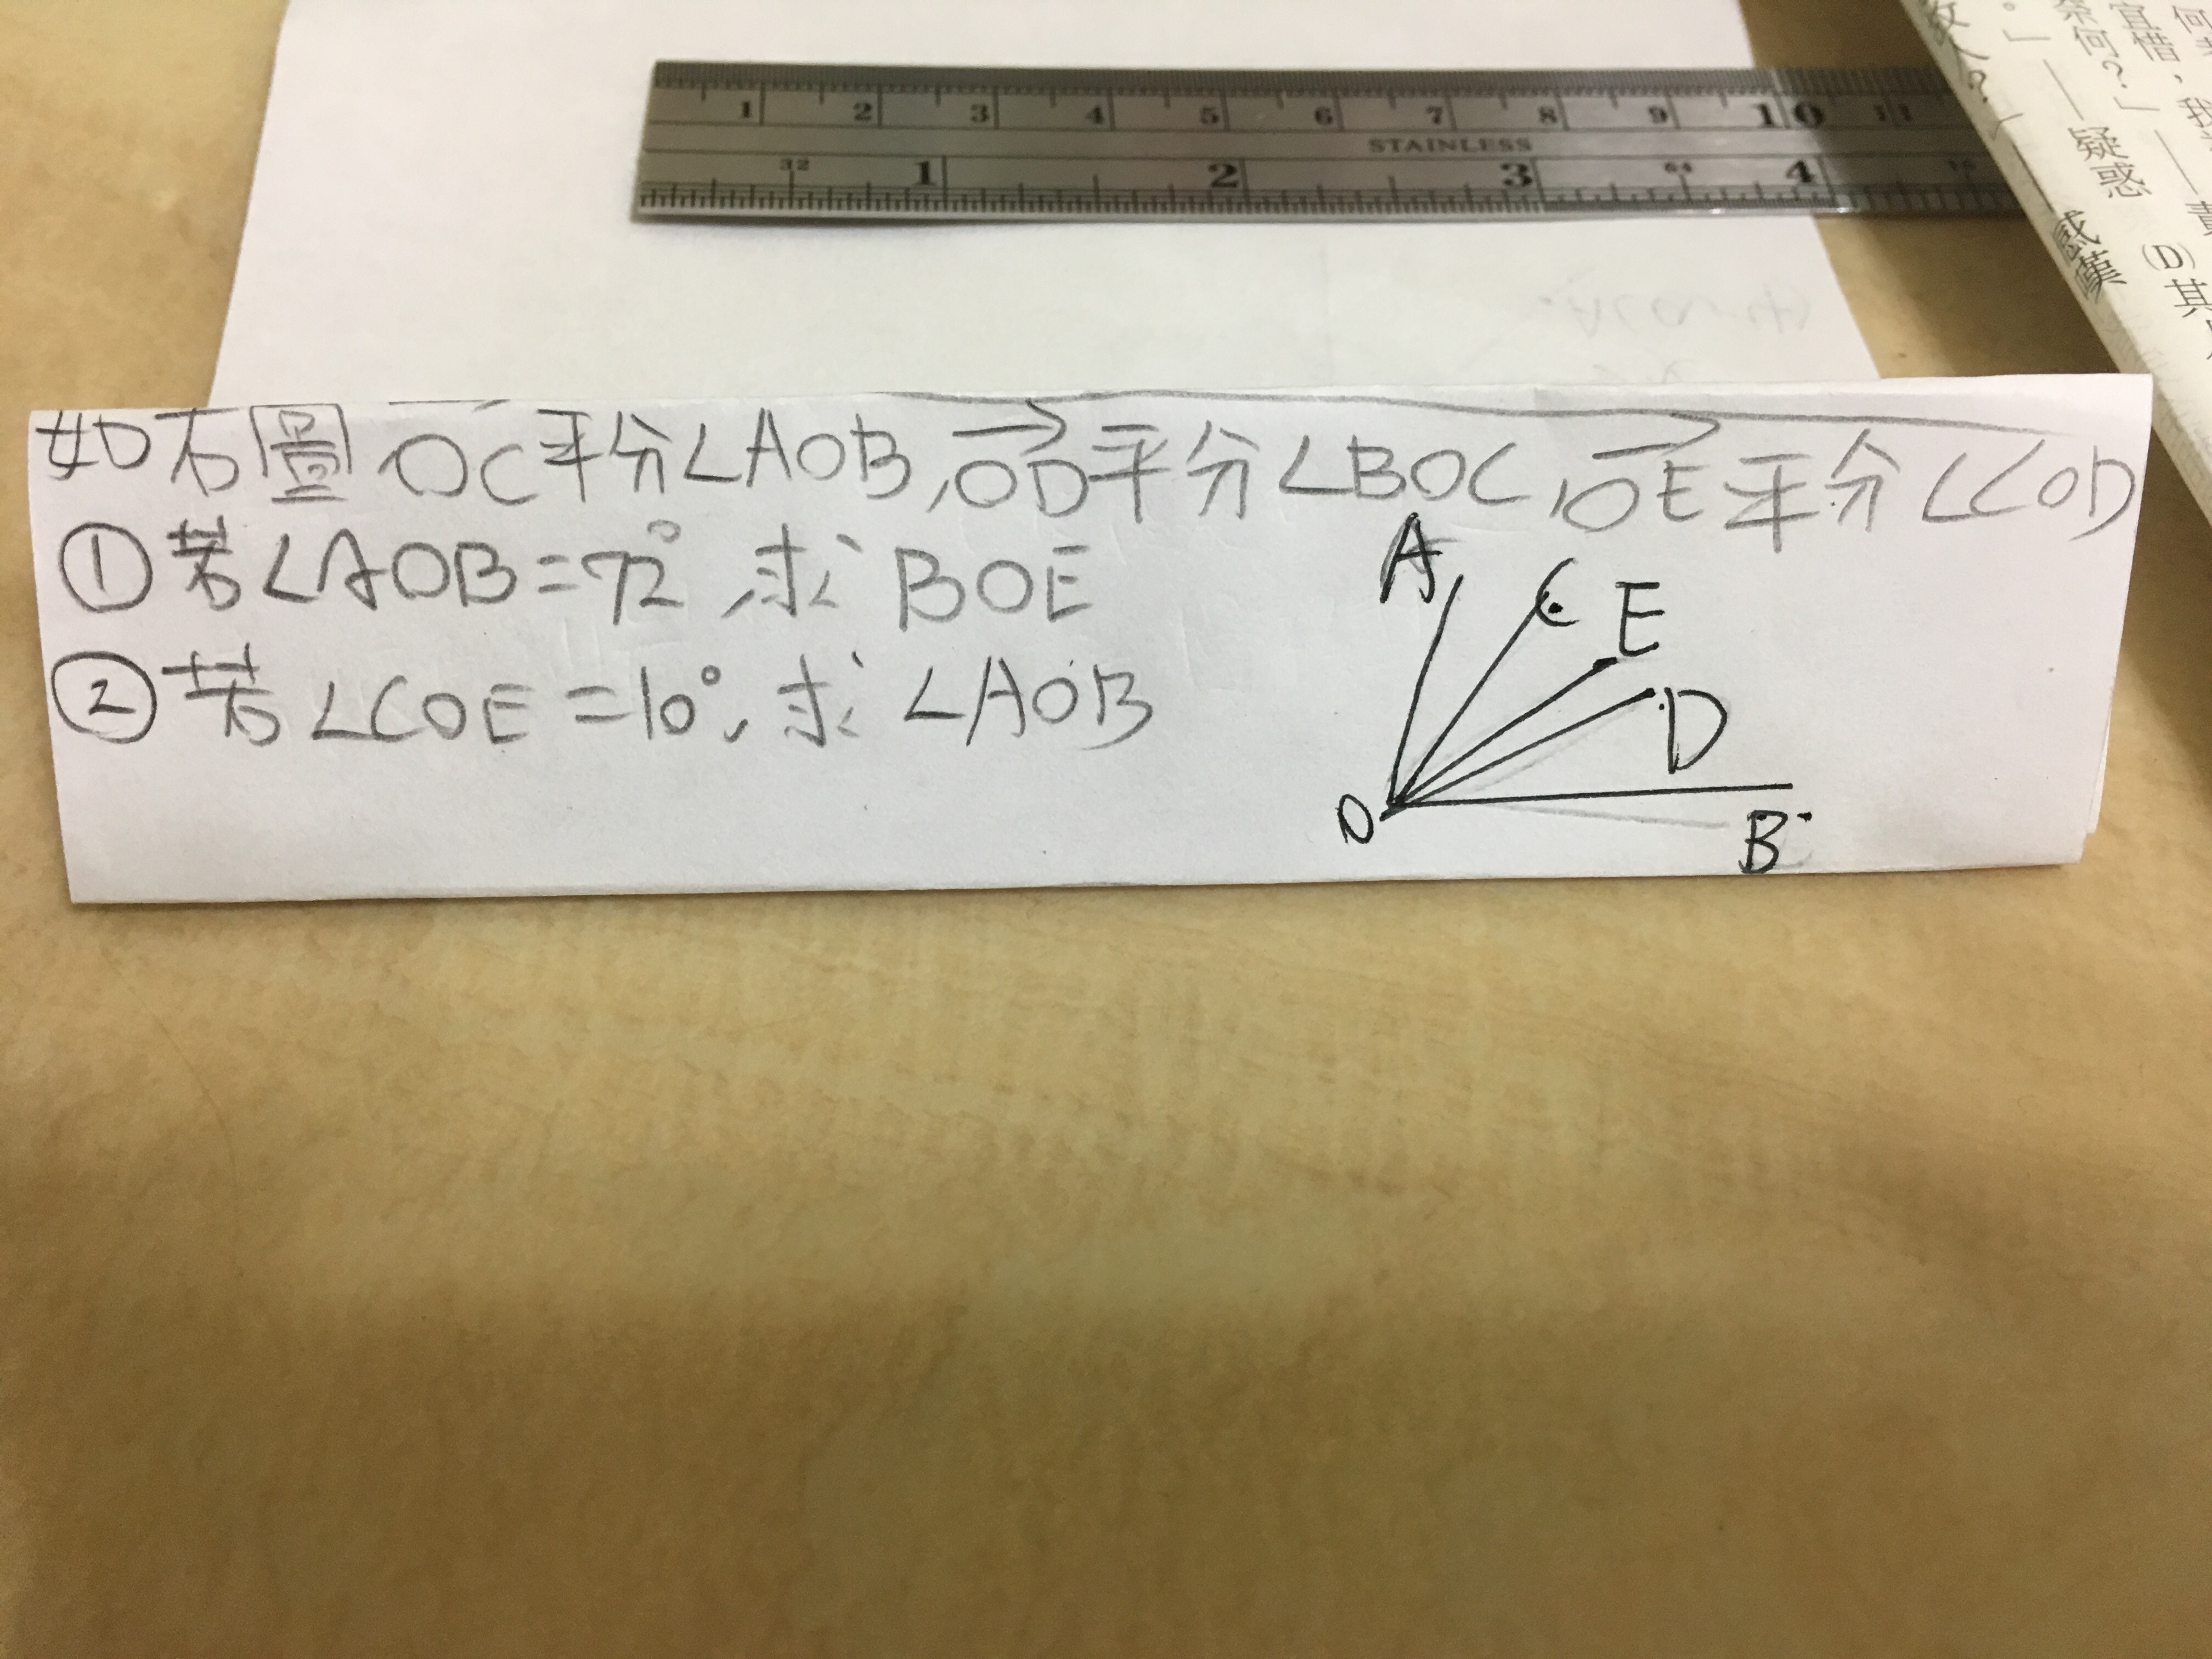 1 2 3 4 5 6 7 8 9 10 11
STAINLESS
32 1 2 3 64 4
宜惜，我
何？」——疑惑
(D)其
感嘆
如右圖 OC平分∠AOB, OD平分∠BOC, OE平分∠COD
① 若∠AOB=72°, 求 BOE
② 若∠COE=10°, 求∠AOB
A C E D O B